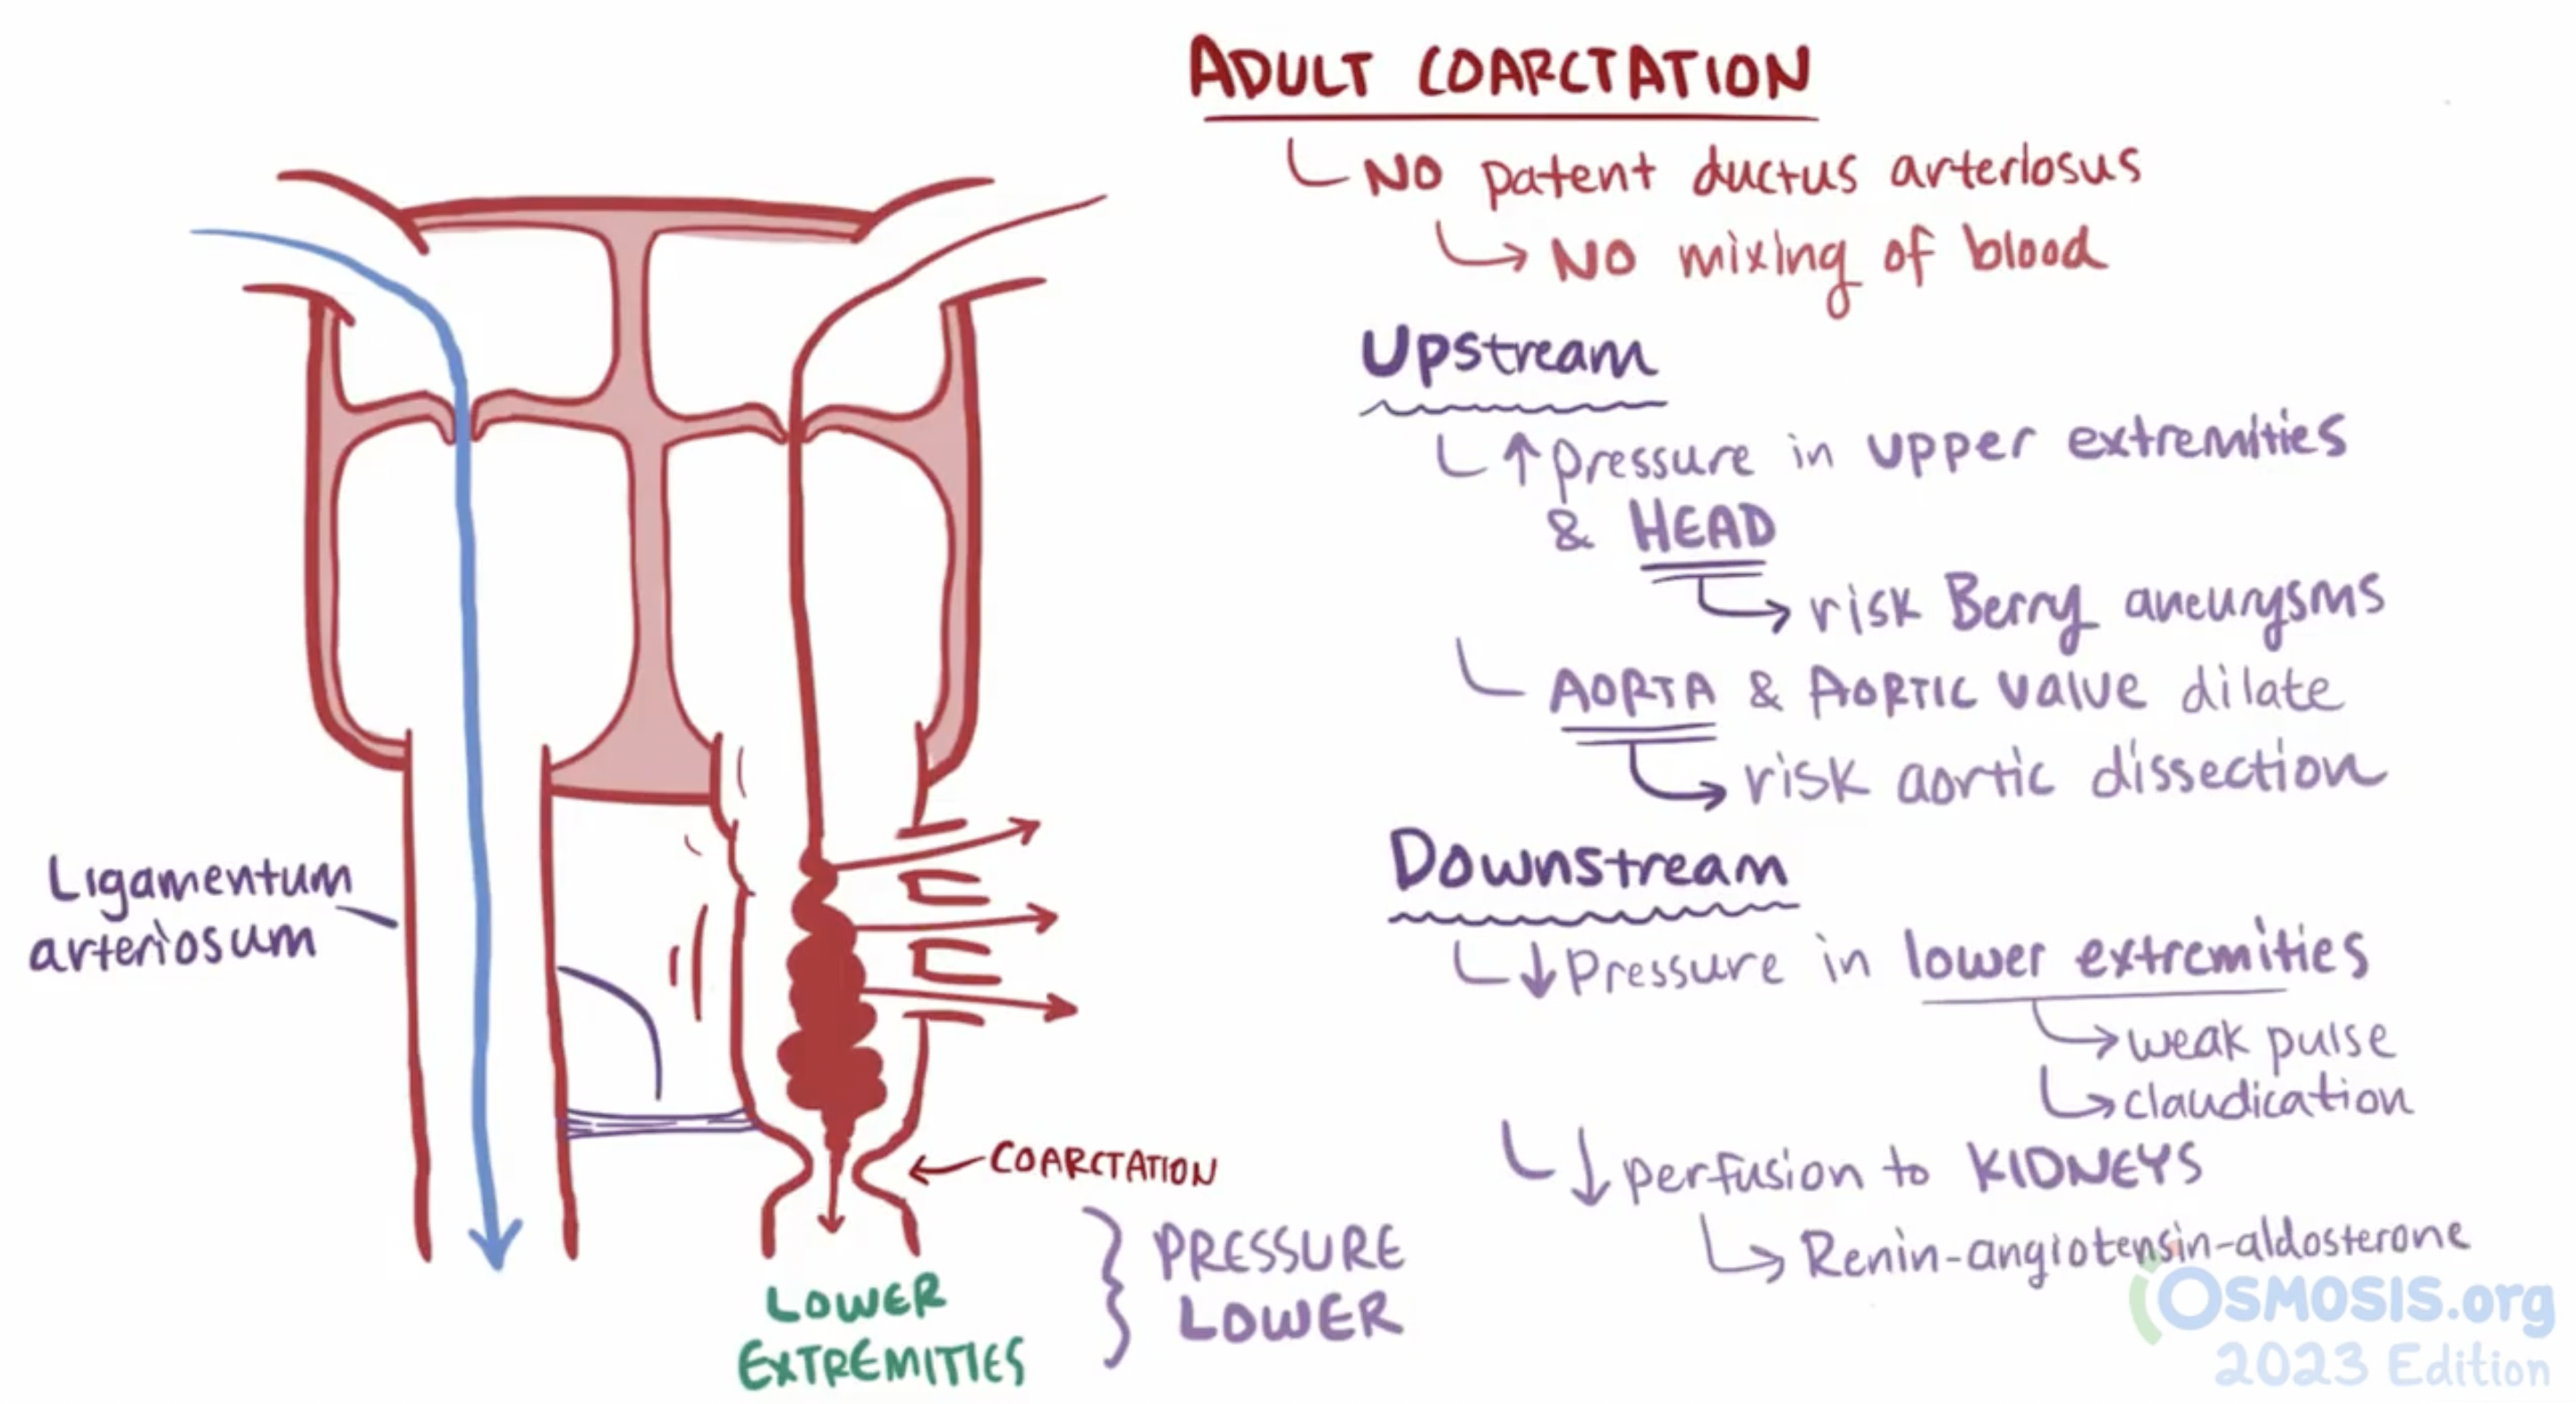 ADULT COARCTATION
NO patent ductus arteriosus
NO mixing of blood
Upstream
↑ pressure in upper extremities
& HEAD
risk Berry aneurysms
AORTA & AORTIC valve dilate
risk aortic dissection
Downstream
↓ pressure in lower extremities
weak pulse
claudication
↓ perfusion to KIDNEYS
Renin-angiotensin-aldosterone
Ligamentum
arteriosum
COARCTATION
LOWER
EXTREMITIES
PRESSURE
LOWER
OSMOSIS.org
2023 Edition